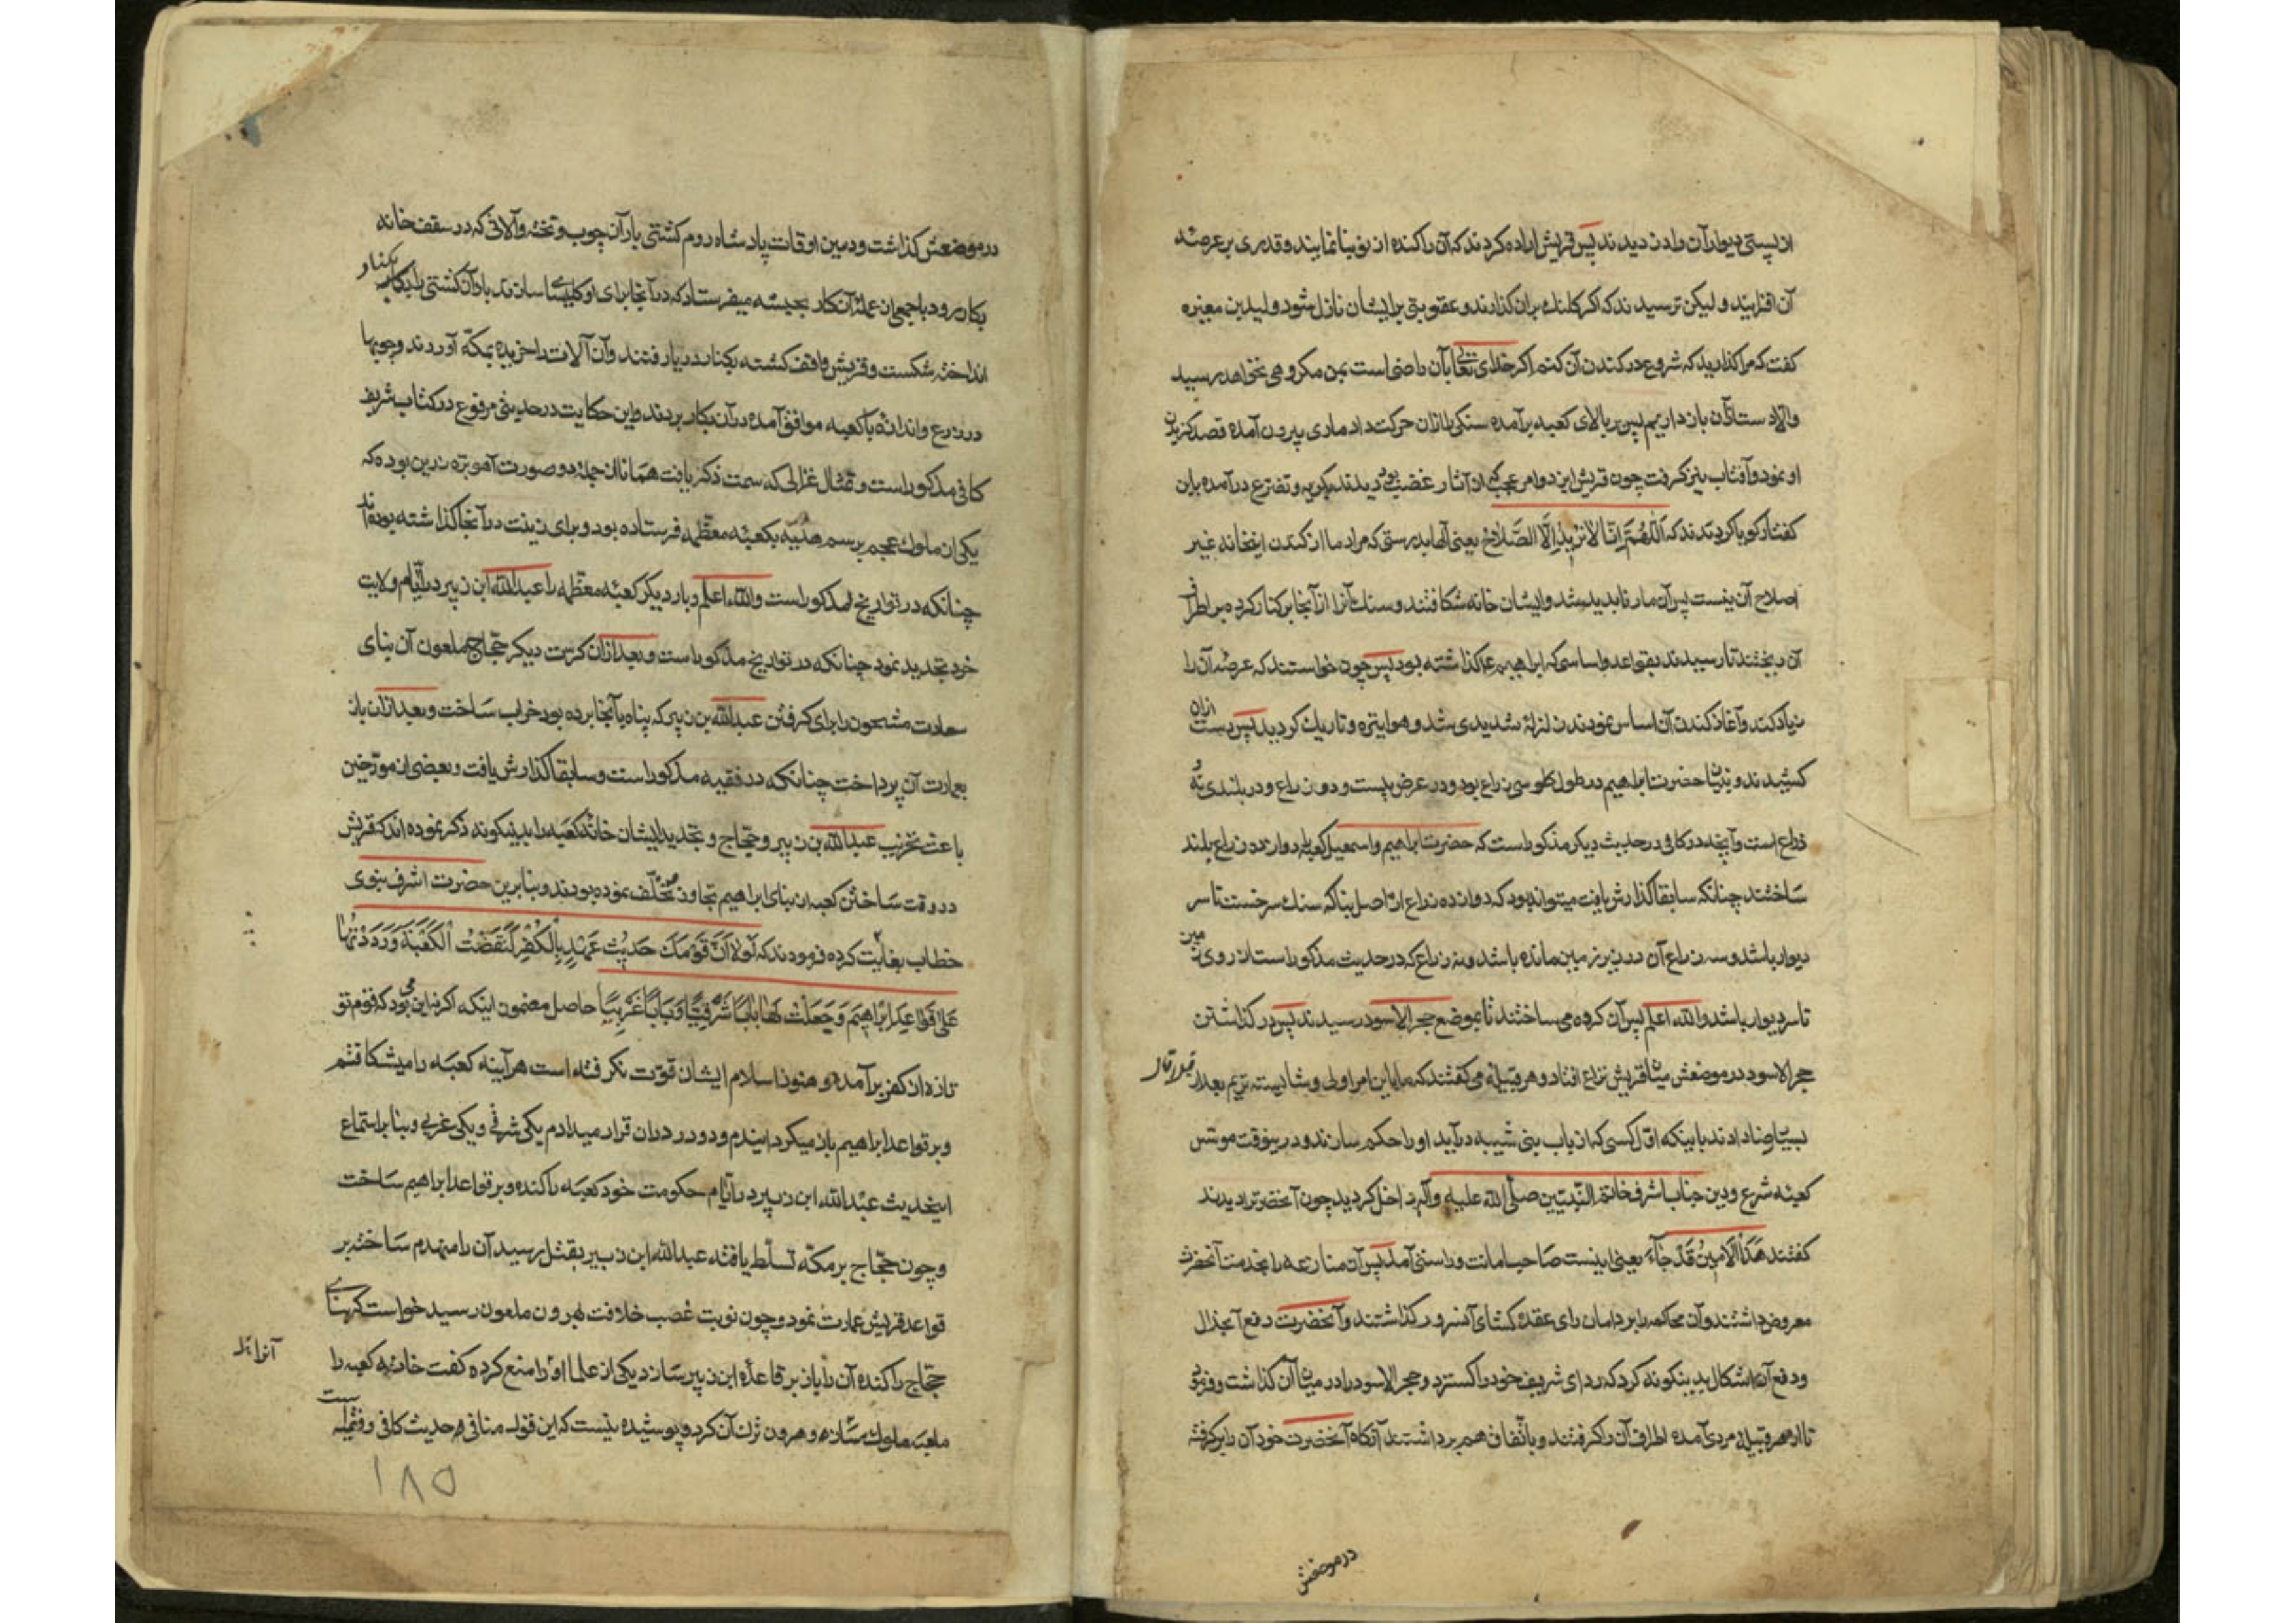 از پستی دیوار آن وادن دیدند پس قریش اراده کردند که آن را کنده از نو بنا نمایند و قدری بر عرصه
آن افزایند و لیکن ترسیدند که اگر کلنک بران گذارند و عقوبتی برایشان نازل شود ولید بن مغیره
کفت که مرا گذارید که شروع در کندن آن کنم اکر خدای تعالی بآن راضی است بمن مکروهی نخواهد رسید
والا دست ازان باز داریم پس بر بالای کعبه برآمده سنکی را ازان حرکت داد ماری بیرون آمده قصد کزیدن
او نمود و آفتاب نیز کرفت چون قریش این دو امر عجیب از آثار غضب دیدند بکریه و تضرع درآمده باین
کفتار کویا کردیدند که اَللّهُمَّ اِنّا لا نُریدُ اِلَّا الصَّلاحَ یعنی آلها بدرستی که مراد ما از کندن اینخانه غیر
اصلاح آن نیست پس آن مار ناپدید شد و ایشان خانه شکافتند و سنک آنرا از آنجا بر کنار کرده بر اطراف
آن ریختند تا رسیدند بقواعد و اساسی که ابراهیم ع گذاشته بود پس چون خواستند که عرصه آن را
زیاد کنند و آغاز کندن آن اساس نمودند زلزلهٔ شدیدی شد و هوا تیره و تاریک کردید پس دست ازان
کشیدند و بنای حضرت ابراهیم در طول سی ذراع بود و در عرض بیست و دو ذراع و در بلندی نه
ذراع است و آنچه در کافی در حدیث دیکر مذکور است که حضرت ابراهیم و اسمعیل کعبه را دوازده ذراع بلند
ساختند چنانکه سابقا گذارش یافت میتواند بود که دوازده ذراع از اصل بنا که سنک سرخست تا سر
دیوار باشد و سه ذراع آن در زیر زمین مانده باشد و نه ذراع که در حدیث مذکور است از روی زمین
تا سر دیوار باشد والله اعلم پس آن کروه می ساختند تا بموضع حجر الاسود رسیدند پس در گذاشتن
حجر الاسود در موضعش میان قریش نزاع افتاد و هر قبیله می کفتند که ما باین امر اولی و شایسته تریم بعد از
بسیار رضا دادند باینکه اول کسی که از باب بنی شیبه درآید او را حکم سازند و درینوقت موسس
کعبه شرع و دین جناب اشرف خاتم النبیین صلی الله علیه وآله داخل کردید چون آنحضرت را دیدند
کفتند هَذَا الاَمینُ قَدْ جاءَ یعنی اینست صاحب امانت و راستی آمد پس آن منازعه را بخدمت آنحضرت
معروض داشتند و آن محاکمه را بر دامان رای عقده کشای آنسرور گذاشتند و آنحضرت رفع آنجدال
و دفع آن اشکال بدینکونه کرد که ردای شریف خود را کسترد و حجر الاسود را در میان آن گذاشت و فرمود
تا از هر قبیله مردی آمده اطراف آن را کرفتند و باتفاق هم برداشتند آنکاه آنحضرت خود آن را بر کرفته
درموضعش
در موضعش گذاشت و درین اوقات پادشاه روم کشتی بار آن چوب و تخته و آلاتی که در سقف خانه
بکار رود با جمعی از عملهٔ آن کار بحبشه میفرستاد که در آنجا برای او کلیسا سازند باد آن کشتی را بکنار
انداخته شکست و قریش واقف کشته بکنار دریا رفتند و آن آلات را خریده بمکه آوردند و چوبها
در ذرع و اندازه با کعبه موافق آمده در آن بکار بردند و این حکایت در حدیثی مرفوع در کتاب شریف
کافی مذکور است و تمثال غزالی که سمت ذکر یافت همانا از جمله دو صورت آهو بره زرین بوده که
یکی از ملوک عجم برسم هدیه بکعبه معظمه فرستاده بود و برای زینت در آنجا گذاشته بوده‌اند
چنانکه در تواریخ مذکور است والله اعلم و بار دیکر کعبه معظمه را عبدالله ابن زبیر در ایام ولایت
خود تجدید نمود چنانکه در تواریخ مذکور است و بعد ازان کرت دیکر حجاج ملعون آن بنای
سعادت مشحون را برای کرفتن عبدالله بن زبیر که پناه بآنجا برده بود خراب ساخت و بعد ازان باز
بعمارت آن پرداخت چنانکه در فقیه مذکور است و سابقا گذارش یافت و بعضی از مورخین
باعث تخریب عبدالله بن زبیر و حجاج و تجدید ایشان خانه کعبه را بدینکونه ذکر نموده‌اند که قریش
در وقت ساختن کعبه از بنای ابراهیم تجاوز نموده بودند و بنابرین حضرت اشرف نبوی
خطاب بعایشه کرده فرمودند که لَوْلا اَنَّ قَوْمَكَ حَدیثُ عَهْدٍ بِالْكُفْرِ لَنَقَضْتُ الْكَعْبَةَ وَرَدَدْتُها
عَلی قَواعِدِ اِبْراهیمَ وَجَعَلْتُ لَها باباً شَرْقِیّاً وَباباً غَرْبِیّاً حاصل مضمون اینکه اکر نه این می بود که قوم تو
تازه از کفر برآمده و هنوز اسلام ایشان قوت نکرفته است هر آینه کعبه را میشکافتم
و بر قواعد ابراهیم باز میکردانیدم و دو در دران قرار میدادم یکی شرقی و یکی غربی و بنا بر استماع
اینحدیث عبدالله ابن زبیر در ایام حکومت خود کعبه را کنده و بر قواعد ابراهیم ساخت
و چون حجاج بر مکه تسلط یافته عبدالله ابن زبیر بقتل رسید آن را منهدم ساخته بر
قواعد قریش عمارت نمود و چون نوبت غصب خلافت بهرون ملعون رسید خواست که بنای
حجاج را کنده آن را باز بر قاعدهٔ ابن زبیر سازد یکی از علما او را منع کرده کفت خانهٔ کعبه را
ملعبه ملوک مساز و هرون ترک آن کرد و پوشیده نیست که این قول منافی حدیث کافی و فقیه است
۱۸۵